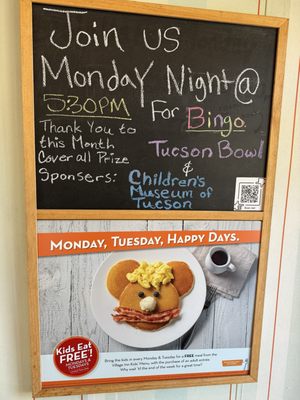 Join us
Monday Night @
5:30PM For Bingo
Thank You to
this Month
Cover all Prize
Sponsers:
Tucson Bowl
&
Children's
Museum of
Tucson
MONDAY, TUESDAY, HAPPY DAYS.
Kids Eat
FREE!
MONDAYS &
TUESDAYS
Bring the kids in every Monday & Tuesday for a FREE meal from the
Village Inn Kids' Menu, with the purchase of an adult entrée.
Why wait 'til the end of the week for a great time?